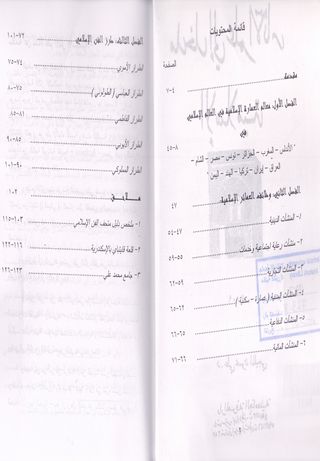 قائمة المحتويات
الصفحة
مقدمة ٤-٧
الفصل الأول: معالم العمارة الإسلامية في العالم الإسلامي
في
٨-٤٥
"الأندلس - المغرب - الجزائر - تونس - مصر - الشام -
العراق - إيران - تركيا - الهند - اليمن"
الفصل الثاني: وظائف العمائر الإسلامية ٤٧
١- المنشآت الدينية ٤٧-٥٤
٢- منشآت رعاية اجتماعية وخدمات ٥٥-٥٩
٣- المنشآت التجارية ٥٩-٦٢
٤- المنشآت المدنية (عمارة - سكنية) ٦٢-٦٥
٥- المنشآت الدفاعية ٦٥-٦٦
٦- المنشآت المائية ٦٦-٧١
الفصل الثالث: طرز الفن الإسلامي ٧٢-١٠١
الطراز الأموي ٧٤-٧٥
الطراز العباسي (الطولوني) ٧٥-٨٠
الطراز الفاطمي ٨١-٨٥
الطراز الأيوبي ٨٥-٩٠
الطراز المملوكي ٩٠-١٠١
ملاحق ١٠٢
١- ملخص دليل متحف الفن الإسلامي ١٠٣-١١٥
٢- قلعة قايتباي بالإسكندرية ١١٦-١٢٢
٣- جامع محمد علي ١٢٢-١٢٣